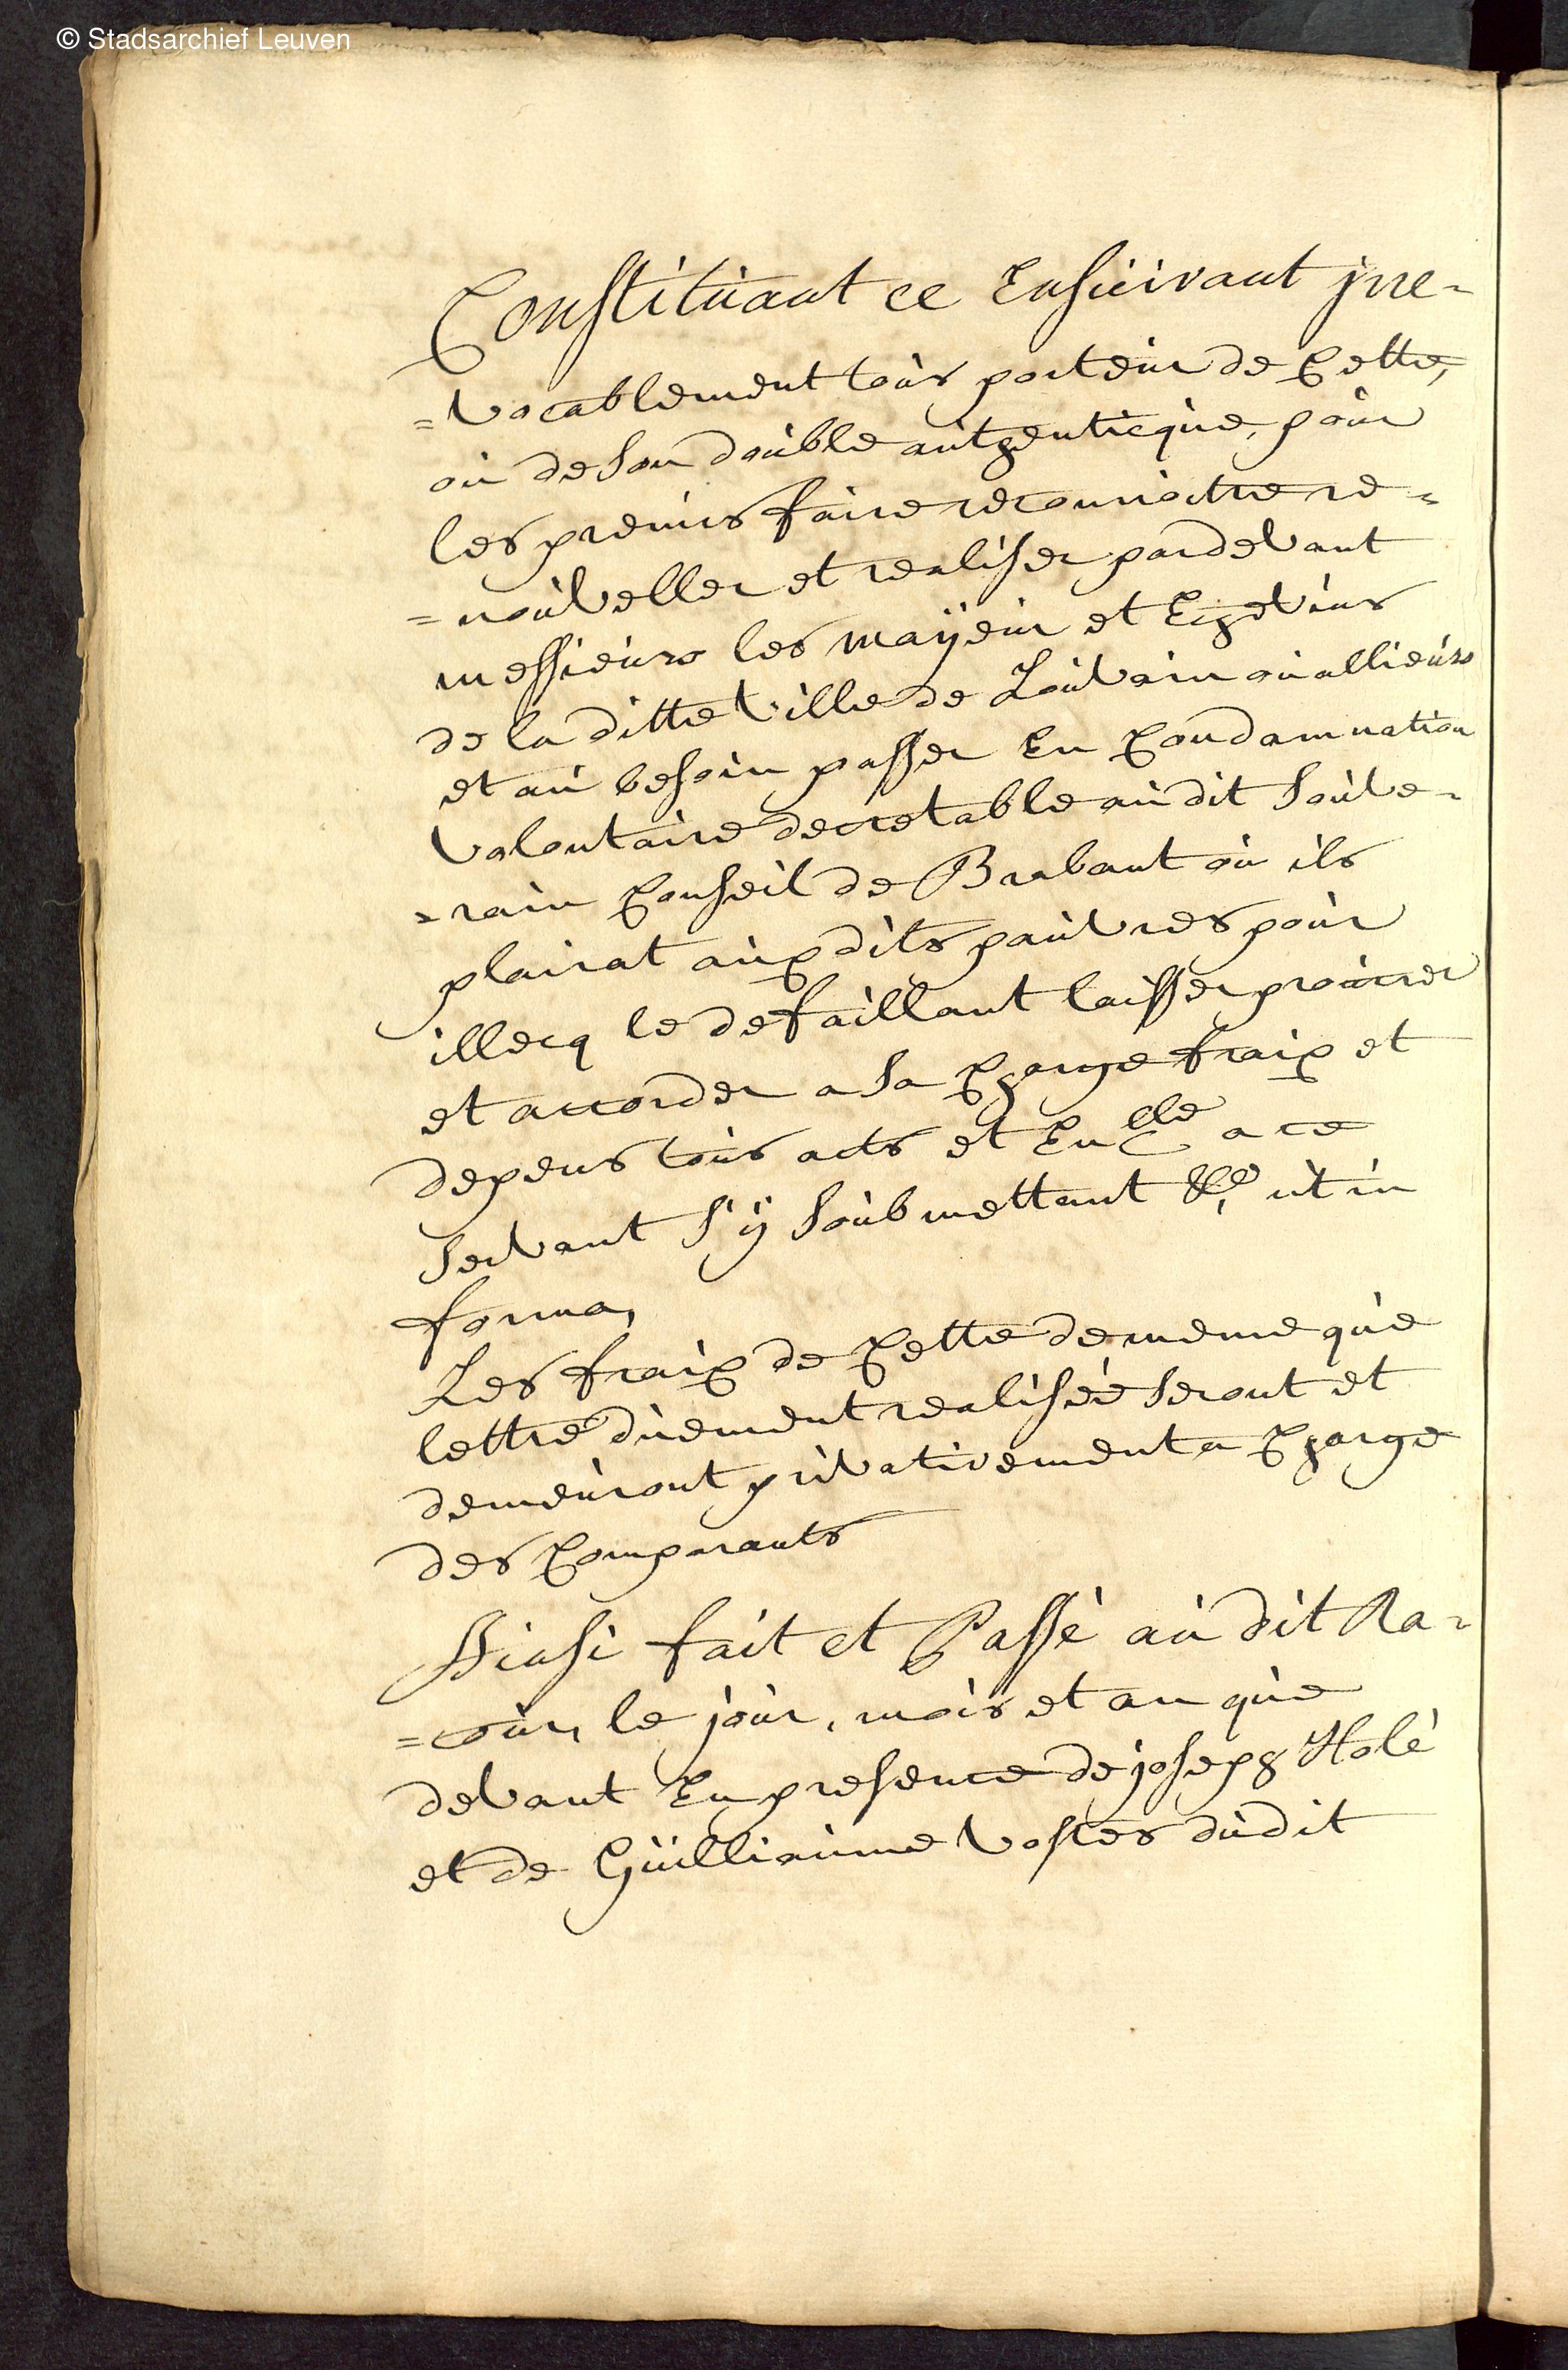 © Stadsarchief Leuven
Constituant ce Ensuivant jrre-
=vocablement tous porteur de Cette,
ou de son double authenticque, pour
les premis faire reconnoitre re=
=nouveller et realiser pardevant
messieurs les maÿeur et Echevins
de la ditte Ville de Louvain ou allieurs
et au besoin passer En Condamnation
Volontaire decretable au dit Souve-
=rain Conseil de Brabant ou ils
plairat aux dits pauvres pour
illecq le defaillant laisser
et accorder a sa Charge fraix et
depens tous acts et a ce
servant s'ÿ soubmettant &a, ut in
forma,
Les fraix de Cette de meme que
lettre duement realisée seront et
demeuront privativement a Charge
des Comparants
Ainsi fait et Passé au dit Ra-
=cour, le jour, mois et an que
devant En presence de joseph Holé
et de Guilliaume Vostes dudit